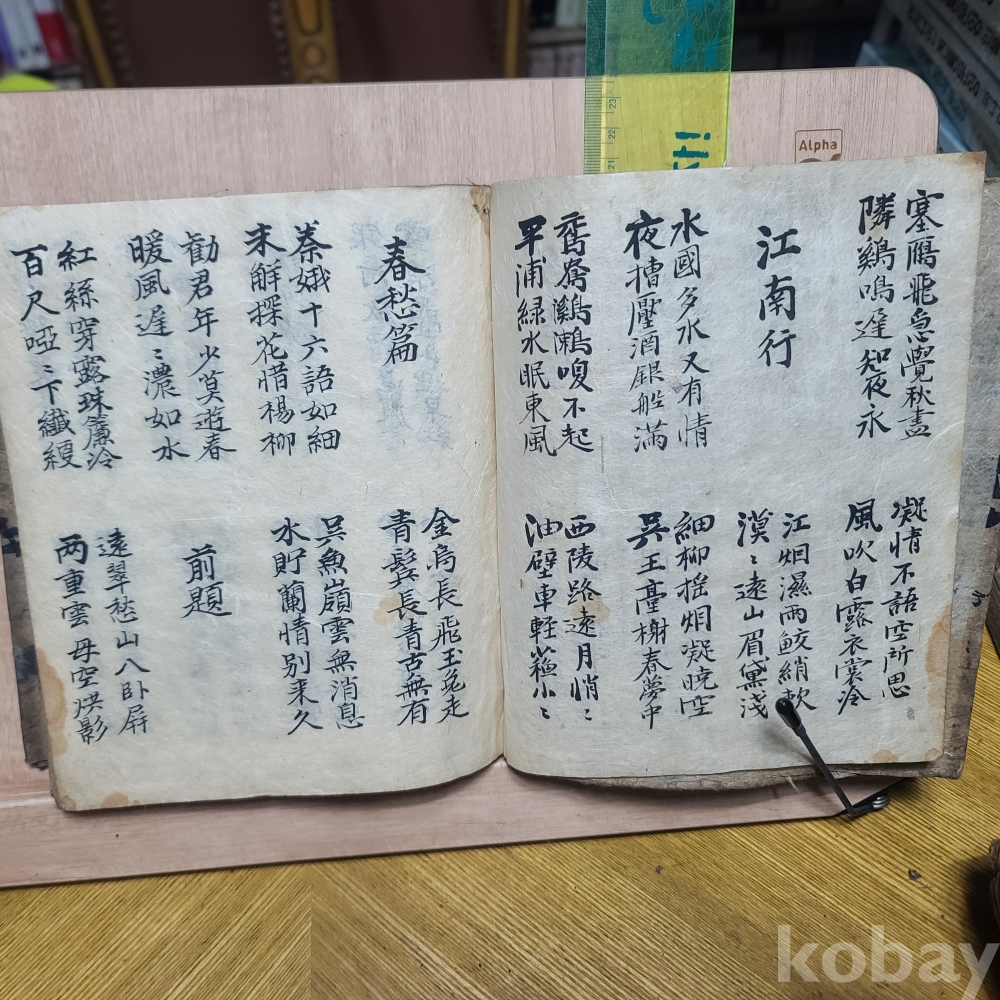 塞鴈飛急覺秋盡
隣鷄鳴遲知夜永
凝情不語空所思
風吹白露衣裳冷
江南行
江烟濕雨鮫綃軟
漠〻遠山眉黛淺
水國多水又有情
夜槽壓酒銀船滿
細柳搖烟凝曉空
吳王臺榭春夢中
鴛鴦鸂鶒嗅不起
平浦綠水眠東風
西陵路遠月悄〻
油壁車輕蘓小〻
春愁篇
金烏長飛玉兔走
青鬂長青古無有
秦娥十六語如細
未解探花惜楊柳
吳魚嶺雲無消息
水貯蘭情別來久
勸君年少莫遊春
暖風遲〻濃如水
前題
遠翠愁山八卧屏
两重雲母空烘影
紅絲穿露珠簾冷
百尺啞〻下纖綆
Alpha
23
22
21
kobay